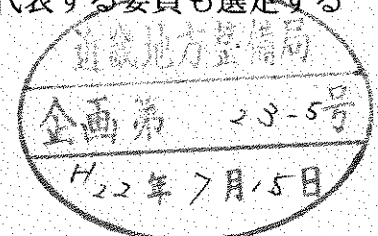 代表する委員も選定する
近畿地方整備局
企画第 23-5号
H22年7月15日